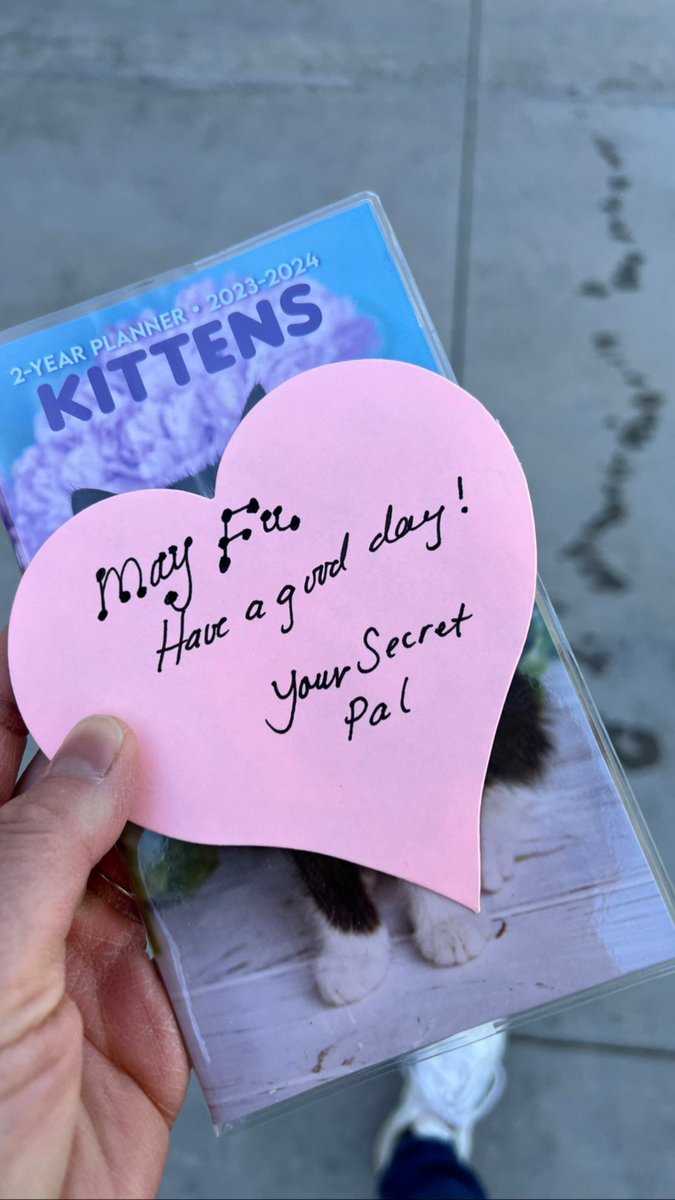 2-YEAR PLANNER • 2023-2024
KITTENS
May Fu
Have a good day!
Your Secret
Pal